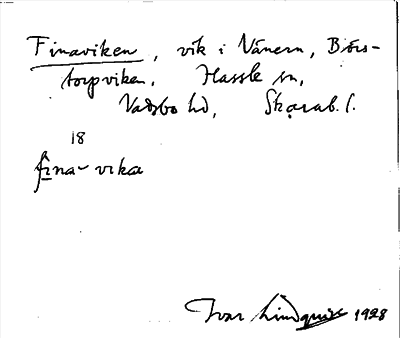 Finaviken, vik i Vänern, Börs-
torpviken, Hassle sn,
Vadsbo hd, Skarab. l.
18
fina- vika
Ivar Lindquist 1928